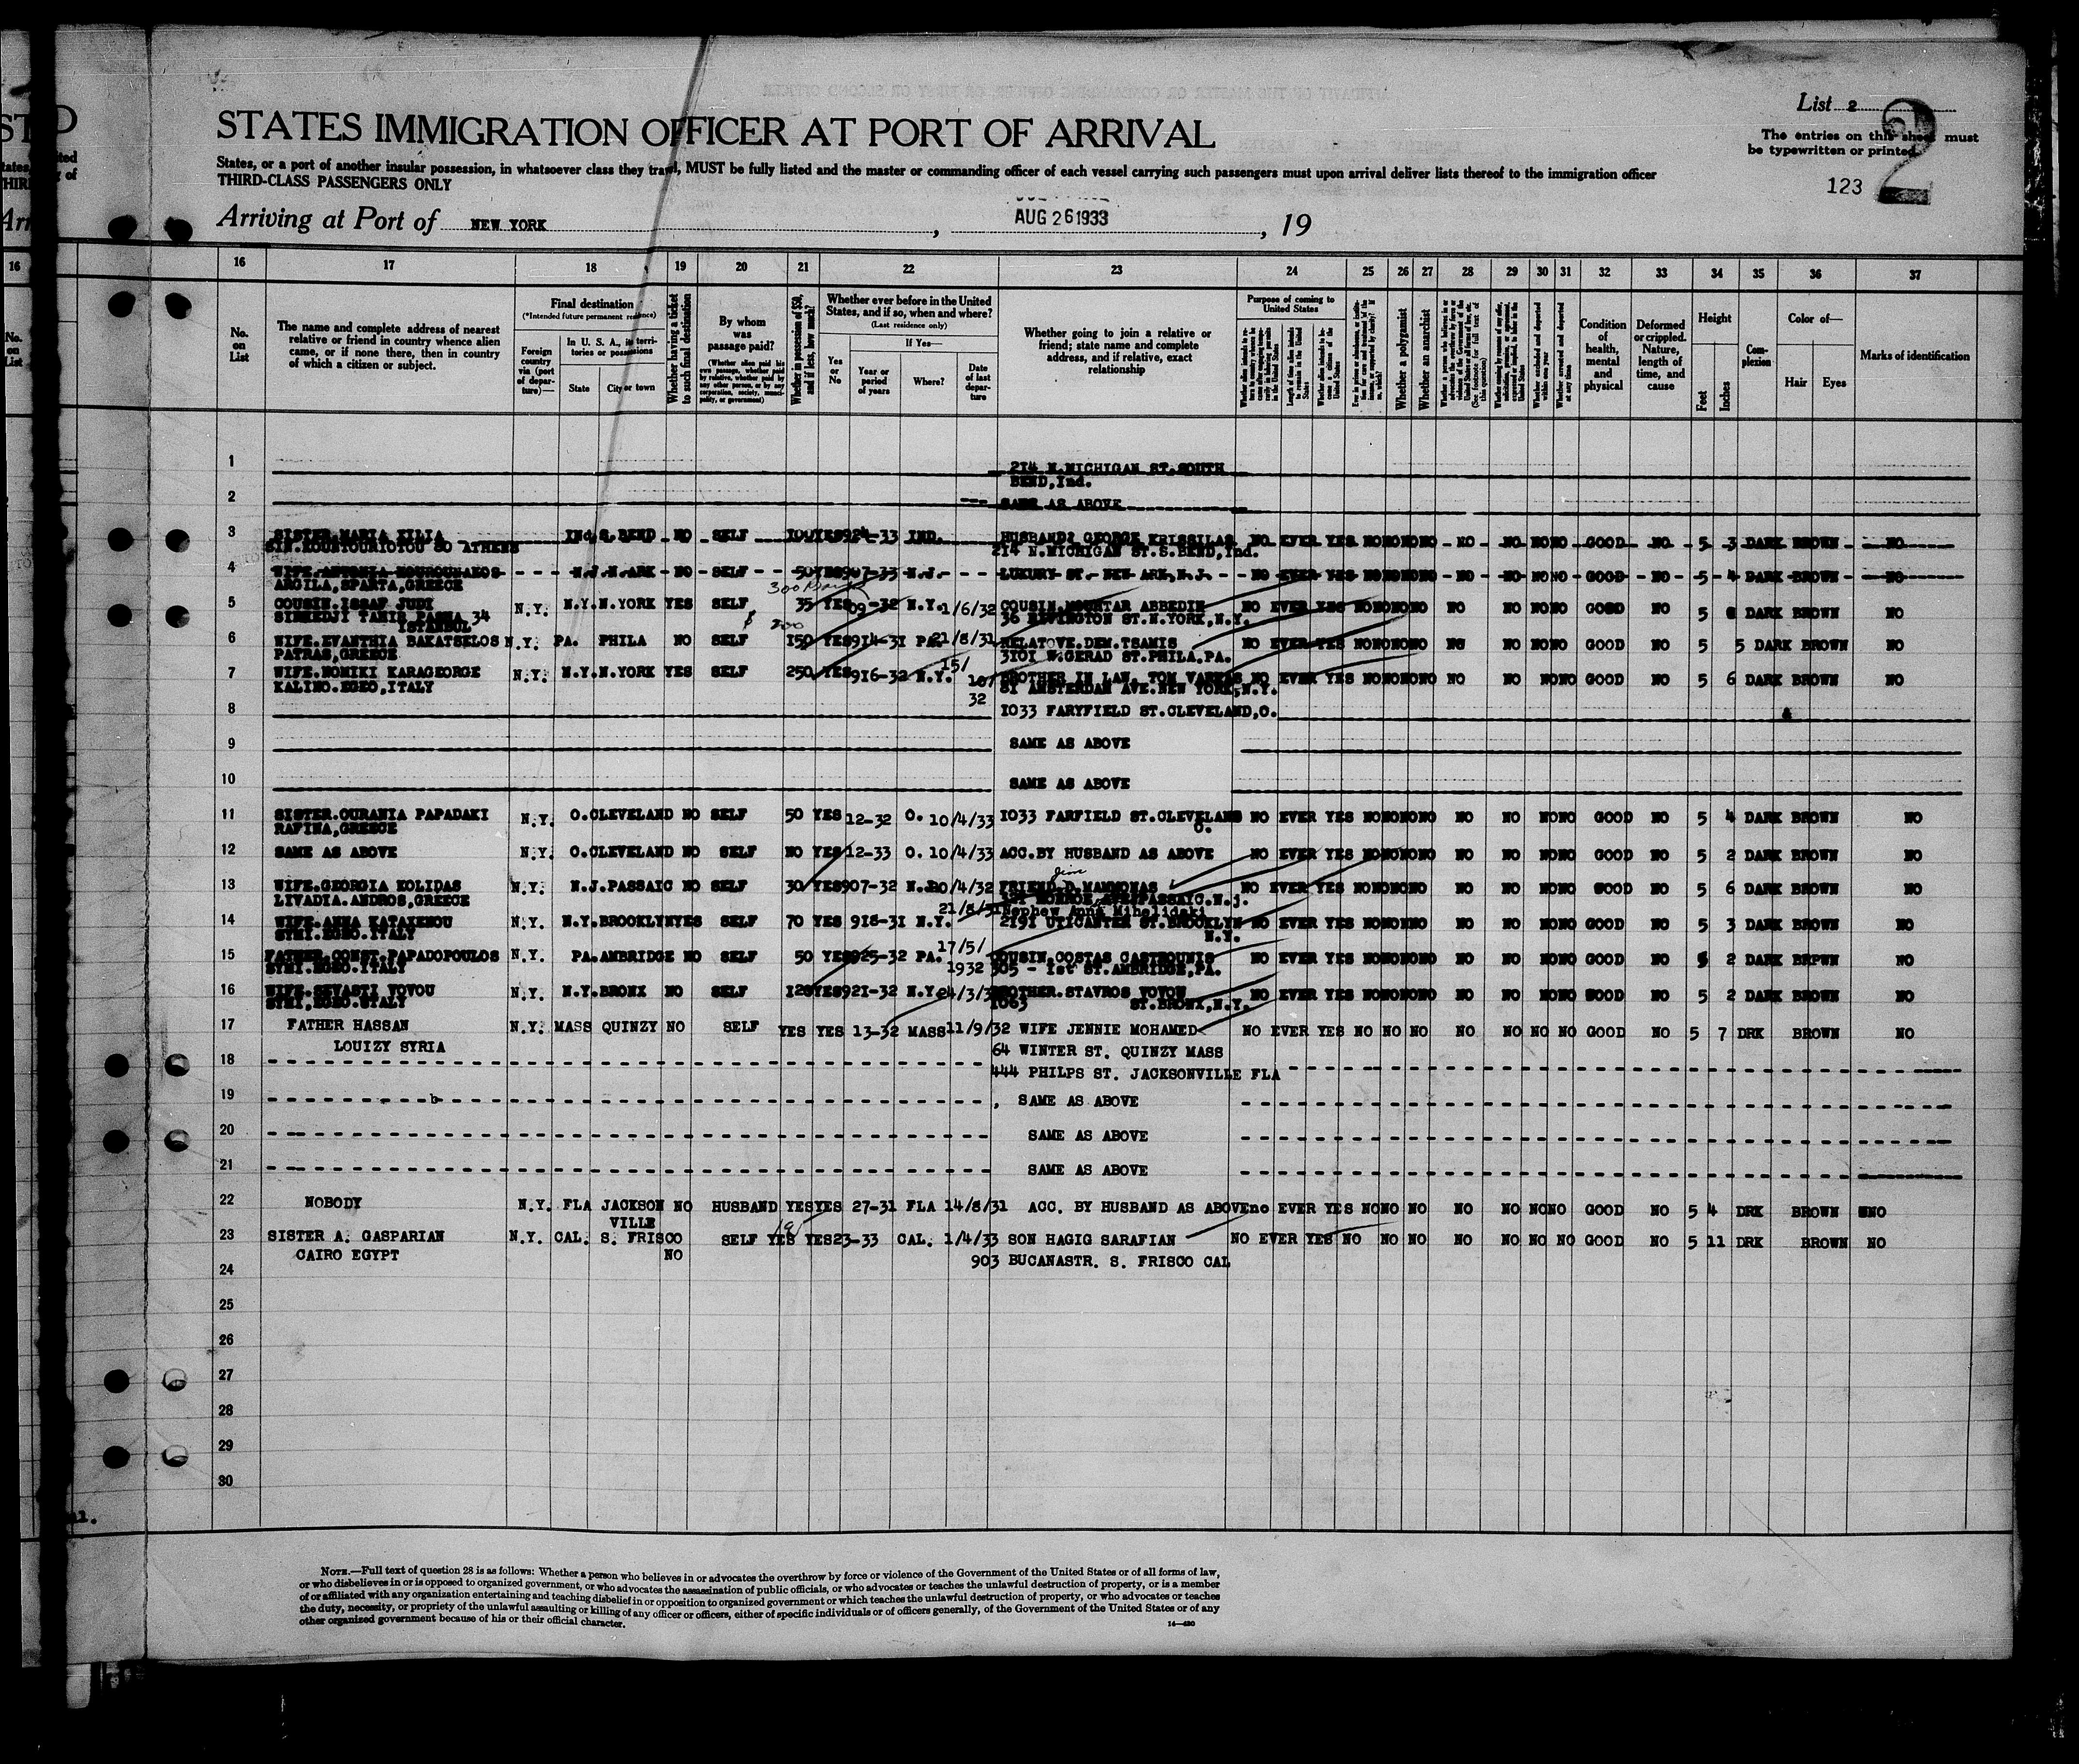 List 2
STATES IMMIGRATION OFFICER AT PORT OF ARRIVAL
The entries on this sheet must
be typewritten or printed
2
States, or a port of another insular possession, in whatsoever class they travel, MUST be fully listed and the master or commanding officer of each vessel carrying such passengers must upon arrival deliver lists thereof to the immigration officer
THIRD-CLASS PASSENGERS ONLY
123
Arriving at Port of NEW YORK, AUG 26 1933, 19
16 17 18 19 20 21 22 23 24 25 26 27 28 29 30 31 32 33 34 35 36 37
No. on List
The name and complete address of nearest relative or friend in country whence alien came, or if none there, then in country of which a citizen or subject.
Final destination
(*Intended future permanent residence)
Foreign country via (port of departure)—
In U. S. A., its territories or possessions
State
City or town
Whether having a ticket to such final destination
By whom was passage paid?
(Whether alien paid his own passage, whether paid by relative, whether paid by any other person, or by any corporation, society, municipality, or government)
Whether in possession of $50, and if less, how much?
Whether ever before in the United States, and if so, when and where?
(Last residence only)
Yes or No
If Yes—
Year or period of years
Where?
Date of last departure
Whether going to join a relative or friend; state name and complete address, and if relative, exact relationship
Purpose of coming to United States
Whether a polygamist
Whether an anarchist
Condition of health, mental and physical
Deformed or crippled. Nature, length of time, and cause
Height
Feet
Inches
Complexion
Color of—
Hair
Eyes
Marks of identification
1 214 N.MICHIGAN ST.SOUTH
BEND,Ind.
2 SAME AS ABOVE
3 SISTER.MARIA XILIA Ind S.BEND NO SELF 100 YES 924-33 IND. HUSBAND: GEORGE KRISSILAS NO EVER YES NO NO NO NO NO NO NO NO GOOD NO 5 3 DARK BROWN NO
SIN.KOUSTOURIOTOU 80 ATHENS 214 N.MICHIGAN ST.S.BEND,Ind.
4 WIFE.ANTONIA N.J.N.ARK NO SELF 50 YES 907-33 N.J. LUXURY ST. NEW ARK,N.J. NO EVER YES NO NO NO NO NO NO NO NO GOOD NO 5 4 DARK BROWN NO
ARGILA,SPARTA,GREECE
5 COUSIN.ISSAF JUDI N.Y. N.Y.N.YORK YES SELF 35 YES 09-32 N.Y. 1/6/32 COUSIN.MOUHTAR ABBEDIN NO EVER YES NO NO NO NO NO NO NO NO GOOD NO 5 DARK BROWN NO
SIRKEDJI TAMIS PASHA 34 36 RIVINGTON ST.N.YORK,N.Y.
ISTANBUL
6 WIFE.EVANTHIA BAKATSELOS N.Y. PA. PHILA NO SELF $ 200 150 YES 914-31 PA. 21/8/31 RELATOVE.DEM.TSAMIS NO EVER YES NO NO NO NO NO NO NO NO GOOD NO 5 5 DARK BROWN NO
PATRAS,GREECE 3101 W.GERAD ST.PHILA.PA.
7 WIFE.NOMIKI KARAGEORGE N.Y. N.Y.N.YORK YES SELF 250 YES 916-32 N.Y. 15/10/32 BROTHER IN LAW. TOM VARKAS NO EVER YES NO NO NO NO NO NO NO NO GOOD NO 5 6 DARK BROWN NO
KALINO.EGEO,ITALY 81 AMSTERDAM AVE.NEW YORK,N.Y.
8 1033 FARYFIELD ST.CLEVELAND,O.
9 SAME AS ABOVE
10 SAME AS ABOVE
11 SISTER.OURANIA PAPADAKI N.Y. O.CLEVELAND NO SELF 50 YES 12-32 O. 10/4/33 1033 FARFIELD ST.CLEVELAND NO EVER YES NO NO NO NO NO NO NO NO GOOD NO 5 4 DARK BROWN NO
RAFINA,GREECE O.
12 SAME AS ABOVE N.Y. O.CLEVELAND NO SELF NO YES 12-33 O. 10/4/33 ACC.BY HUSBAND AS ABOVE NO EVER YES NO NO NO NO NO NO NO NO GOOD NO 5 2 DARK BROWN NO
13 WIFE.GEORGIA KOLIDAS N.Y. N.J.PASSAIC NO SELF 30 YES 907-32 N.J. 20/4/32 FRIEND.D.MAMMONAS NO EVER YES NO NO NO NO NO NO NO NO GOOD NO 5 6 DARK BROWN NO
LIVADIA.ANDROS,GREECE MONROE AVE.PASSAIC.N.j.
14 WIFE.ANNA KATAXENOU N.Y. N.Y.BROOKLYN YES SELF 70 YES 918-31 N.Y. 21/8/31 Nephew Anna Mihelidaki NO EVER YES NO NO NO NO NO NO NO NO GOOD NO 5 3 DARK BROWN NO
SYMI.EGEO.ITALY 2191 ST.BROOKLYN
N.Y.
15 FATHER.CONST.PAPADOPOULOS N.Y. PA.AMBRIDGE NO SELF 50 YES 925-32 PA. 17/5/1932 COUSIN.COSTAS CASTROUNIS NO EVER YES NO NO NO NO NO NO NO NO GOOD NO 5 2 DARK BRPWN NO
SYMI.EGEO.ITALY 305 - 1st ST.AMBRIDGE,PA.
16 WIFE.SEVASTI VOVOU N.Y. N.Y.BRONX NO SELF 120 YES 921-32 N.Y. BROTHER.STAVROS VOVOU NO EVER YES NO NO NO NO NO NO NO NO GOOD NO 5 2 DARK BROWN NO
SYMI,EGEO.ITALY 1063 ST.BRONX,N.Y.
17 FATHER HASSAN N.Y. MASS QUINZY NO SELF YES YES 13-32 MASS 11/9/32 WIFE JENNIE MOHAMED NO EVER YES NO NO NO NO NO NO NO GOOD NO 5 7 DRK BROWN NO
LOUIZY SYRIA 64 WINTER ST. QUINZY MASS
18 444 PHILPS ST. JACKSONVILLE FLA
19 , SAME AS ABOVE
20 SAME AS ABOVE
21 SAME AS ABOVE
22 NOBODY N.Y. FLA JACKSON NO HUSBAND YES YES 27-31 FLA 14/8/31 ACC. BY HUSBAND AS ABOVE no EVER YES NO NO NO NO NO NO NO GOOD NO 5 4 DRK BROWN NO
VILLE
23 SISTER A. GASPARIAN N.Y. CAL. S. FRISCO SELF YES YES 23-33 CAL. 1/4/33 SON HAGIG SARAFIAN NO EVER YES NO NO NO NO NO NO NO GOOD NO 5 11 DRK BROWN NO
CAIRO EGYPT NO 903 BUCANASTR. S. FRISCO CAL
24
25
26
27
28
29
30
NOTE.—Full text of question 28 is as follows: Whether a person who believes in or advocates the overthrow by force or violence of the Government of the United States or of all forms of law,
or who disbelieves in or is opposed to organized government, or who advocates the assassination of public officials, or who advocates or teaches the unlawful destruction of property, or is a member
of or affiliated with any organization entertaining and teaching disbelief in or opposition to organized government or which teaches the unlawful destruction of property, or who advocates or teaches
the duty, necessity, or propriety of the unlawful assaulting or killing of any officer or officers, either of specific individuals or of officers generally, of the Government of the United States or of any
other organized government because of his or their official character.
14—430